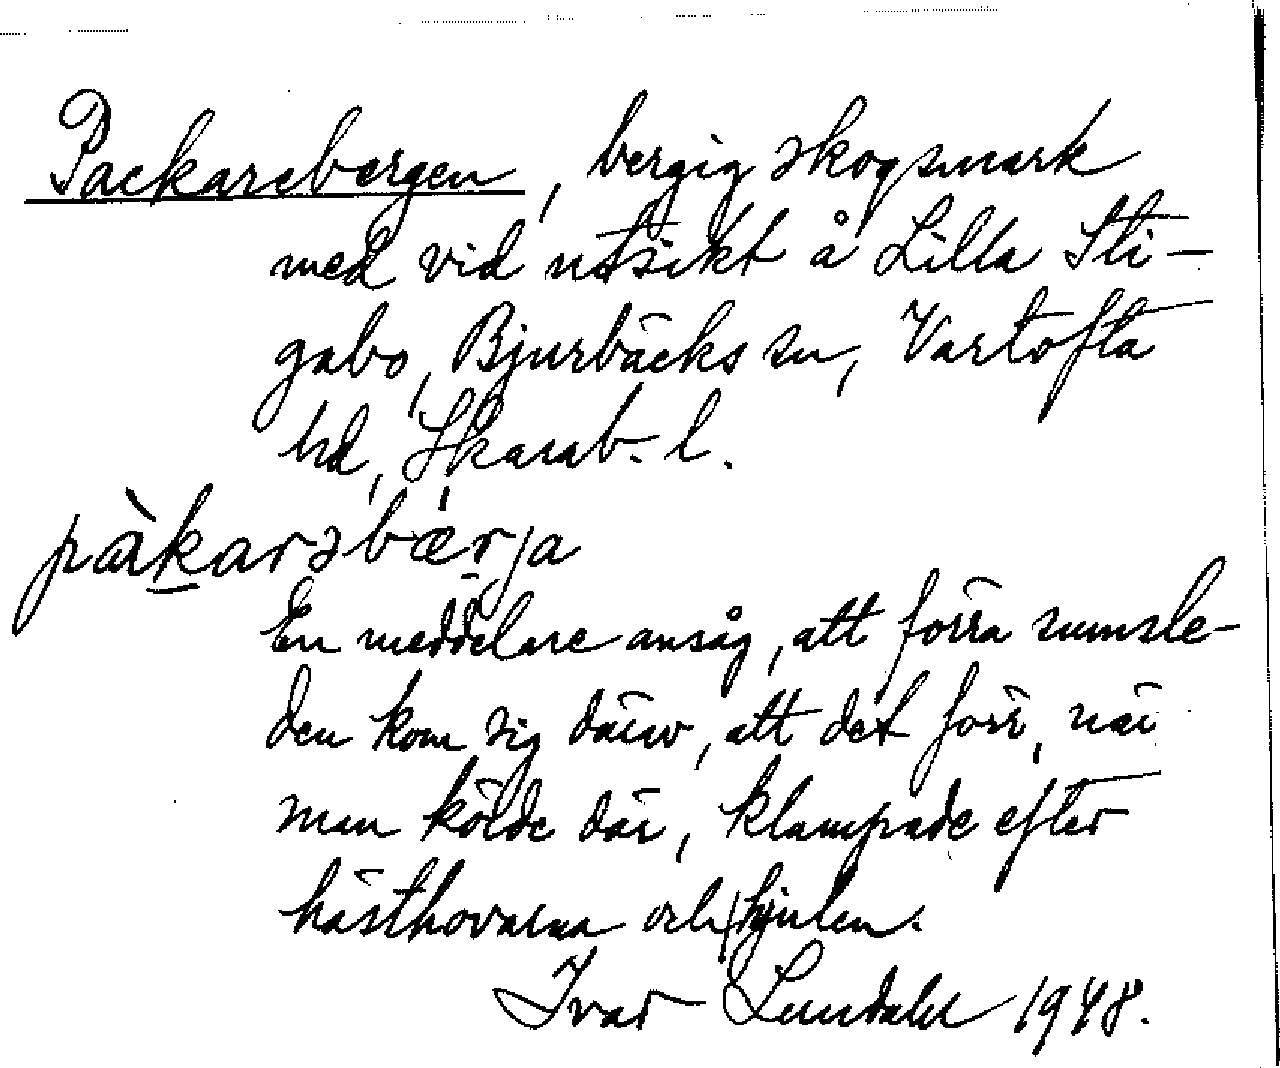 Packarebergen, bergig skogsmark
med vid utsikt å Lilla Sti-
gabo, Bjurbäcks sn, Vartofta
hd, Skarab. l.
pàkarsbær̩ja
En meddelare ansåg, att förra namnsle-
den kom sig därav, att det förr, när
man körde där, klampade efter
hästhovarna och hjulen.
Ivar Lundahl 1948.